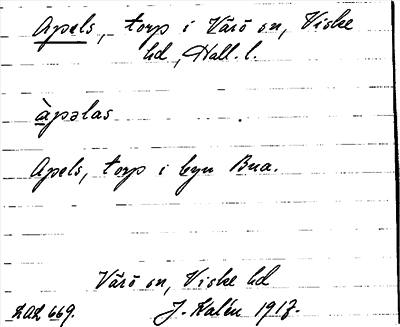 Apels, torp i Värö sn, Viske
hd, Hall. l.
àpəlas
Apels, torp i byn Bua.
Värö sn, Viske hd
ZAL 669. J. Kalén 1917.